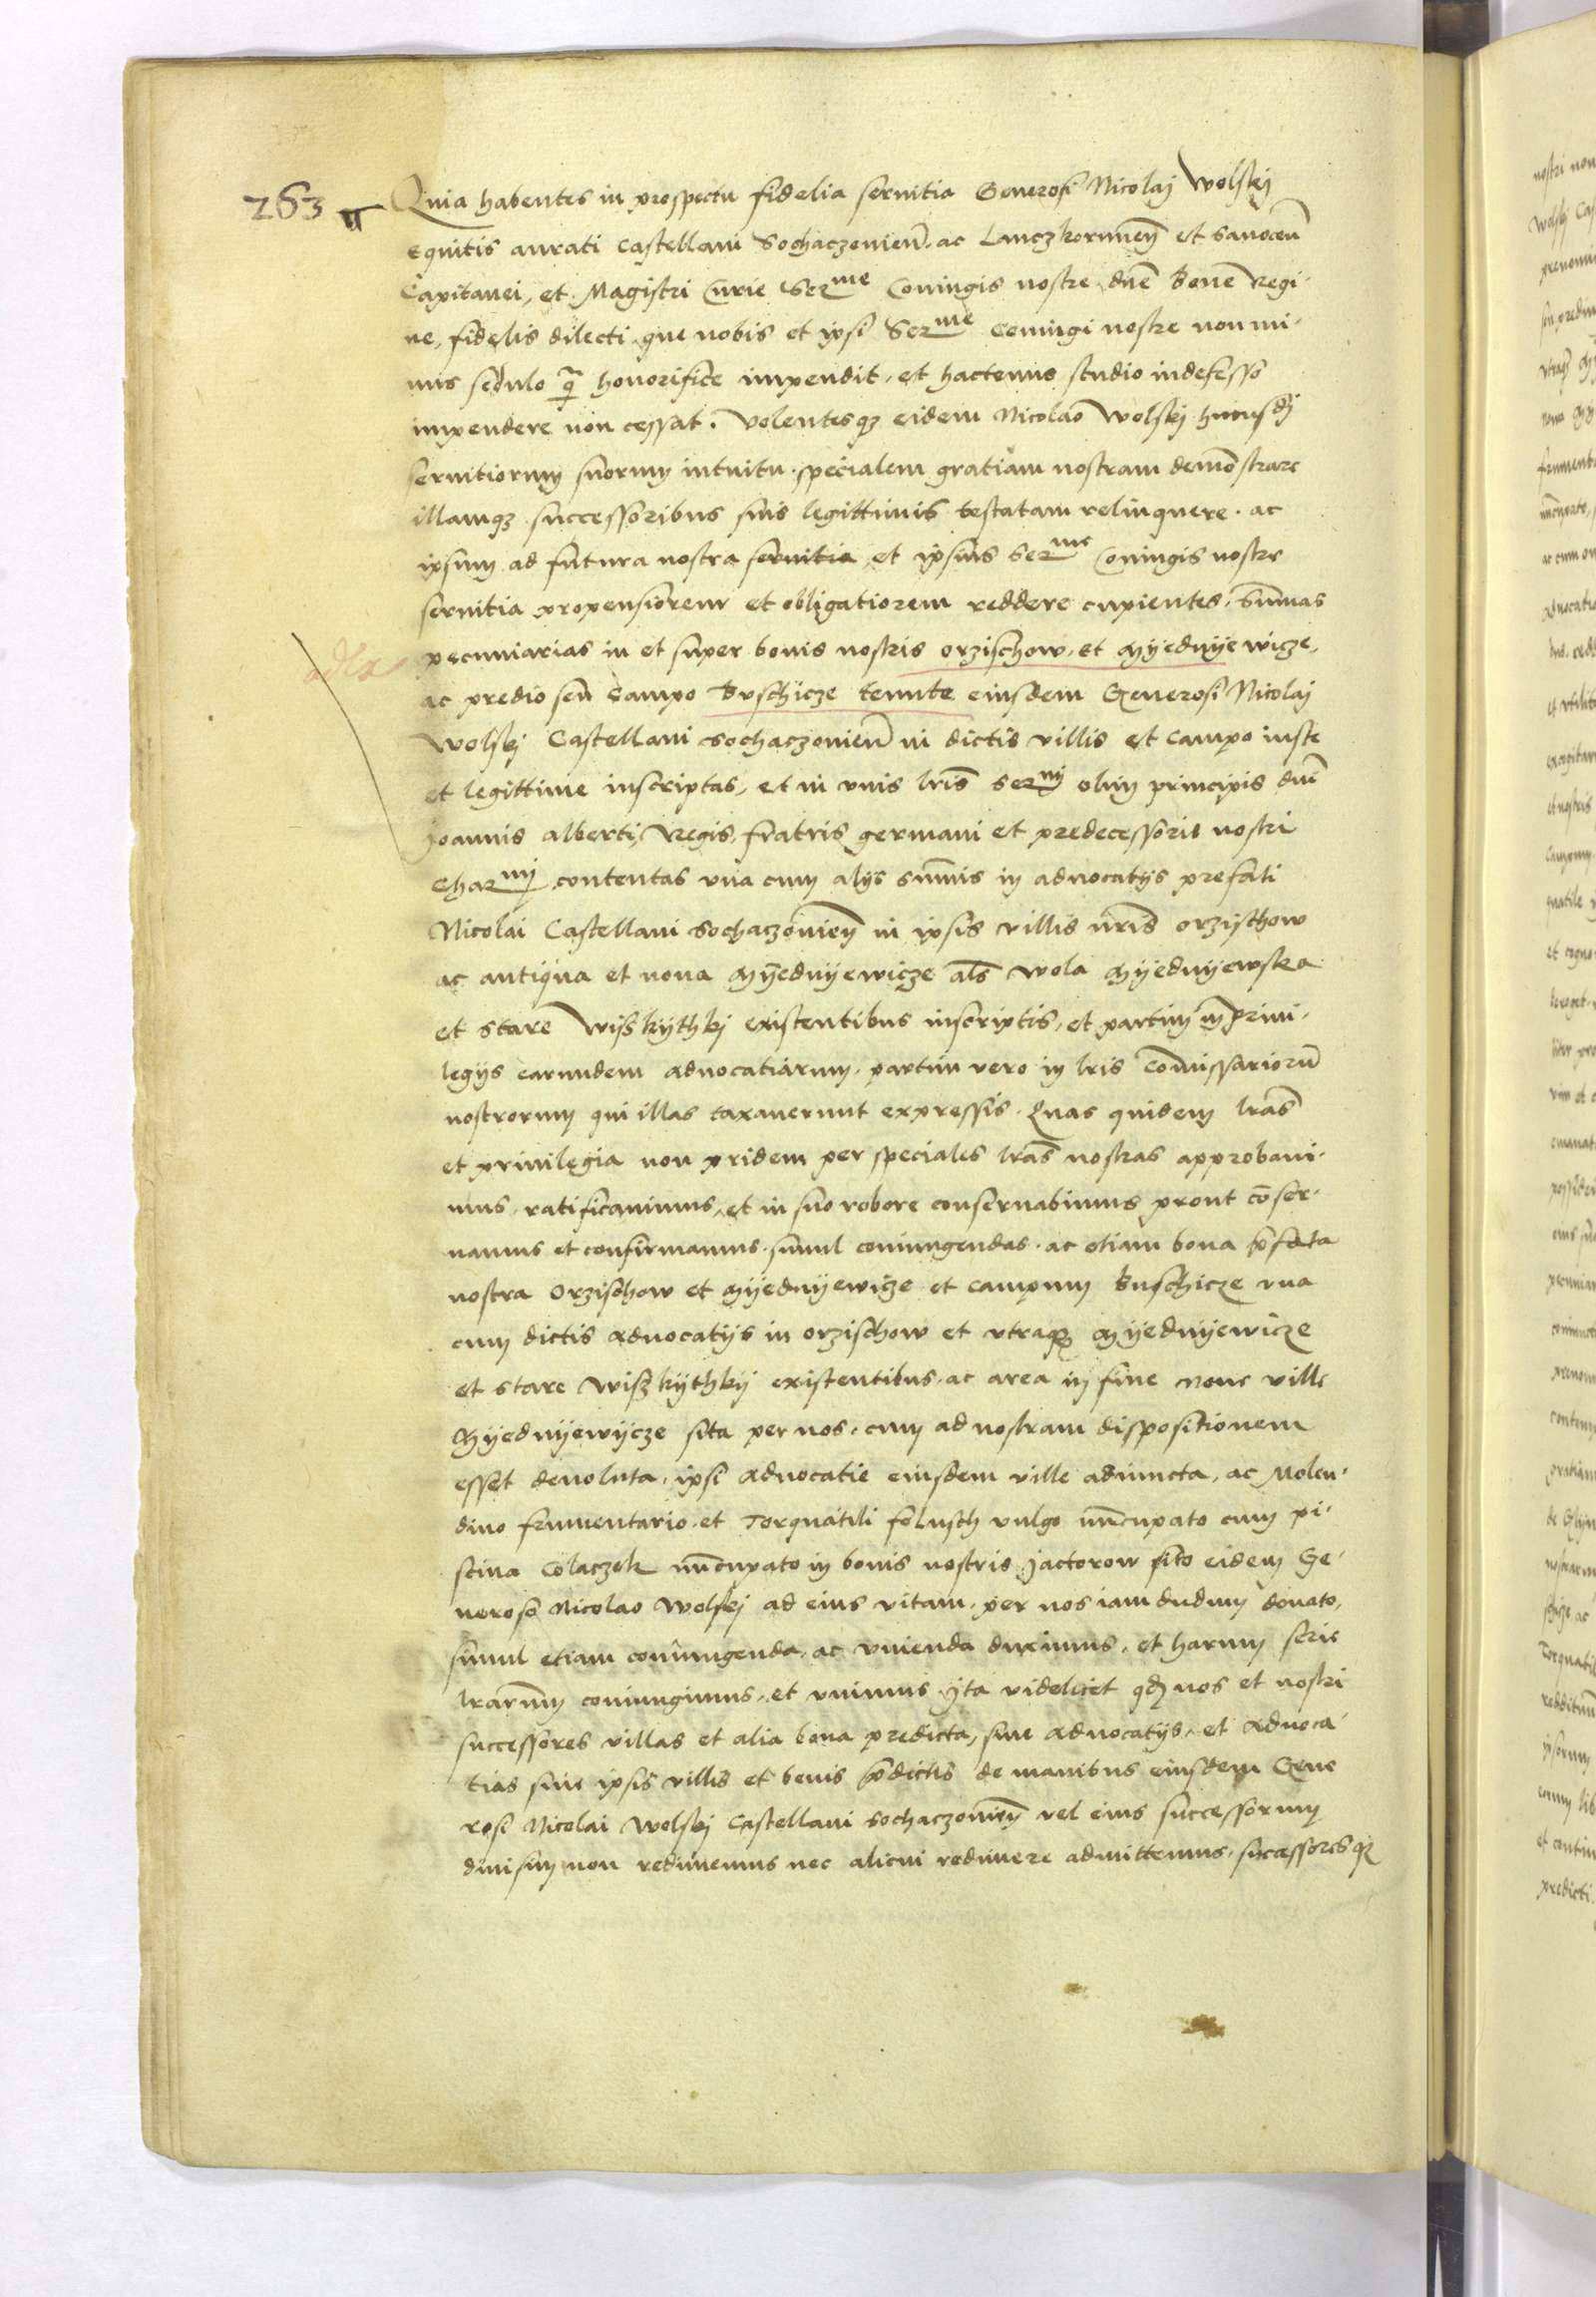 263 Quia habentes in prospectu fidelia servitia Generosi Nicolaj Wolskij
Equitis aurati Castellani Sochaczovien̄. ac Lanczkorunen̄ et Sanocen̄
Capitanei, et Magistri Curie Ser^me Coniugis nostre dn̄e Bone Regi-
ne, fidelis dilecti que nobis et ipsi Ser^me Coniugi nostre non mi-
nus sedulo q̄ honorifice impendit, et hactenus studio indefesso
impendere non cessat. Volentesq3 eidem Nicolao Wolskj huiusdj
servitiorum suorum intuitu specialem gratiam nostram demōstrare
illamq3 successoribus suis legittimis testatam relinquere. ac
ipsum ad futura nostra servitia et ipsius Ser^me Coniugis nostre
servitia propensiorem et obligatiorem reddere cupientes, Sum̄as
pecuniarias in et super bonis nostris Orzischow, et Myednyewicze,
ac predio seu Campo Buschicze tenute eiusdem Generosi Nicolaj
Wolskj Castellani Sochaczovien̄ in dictis villis et campo iuste
et legittime inscriptas, et in unis lr̄is Ser^mj olim principis dn̄i
Joannis Alberti, Regis, fratris germani et predecessoris nostri
Char^mj contentas una cum alijs sum̄is in advocatijs prefati
Nicolai Castellani Sochaczovien̄ in ipsis villis nr̄is Orzischow
ac antiqua et nova Myednyewicze al̄s Wola Myednyewska
et Stare Wiskythkj existentibus inscriptis, et partim in privi-
legijs earundem advocatiarum, partim vero in lris Commissariorū
nostrorum qui illas taxaverunt expressis. Quas quidem lr̄as
et privilegia non pridem per speciales lr̄as nostras approbavi-
mus, ratificavimus, et in suo robore conservabimus prout cōser-
vamus et confirmamus, simul coniungendas, ac etiam bona p̄fata
nostra Orzischow et Myednyewicze et campum Buschicze una
cum dictis advocatijs in Orzischow et utraq3 Myednyewicze
et Stare Wiskythkij existentibus, ac area in fine nove ville
Myednyewycze sita per nos, cum ad nostram dispositionem
esset devoluta, ipsi advocatie eiusdem ville adiuncta, ac Molen-
dino frumentario et Torquatili folusch vulgo nūcupato cum pi-
scina Colaczek nūcupato in bonis nostris Jactorow sito eidem Ge-
neroso Nicolao Wolskj ad eius vitam, per nos iamdudum donato,
simul etiam coniungenda, ac unienda duximus, et harum serie
lrarum coniungimus, et unimus ita videlicet qđ nos et nostri
successores villas et alia bona predicta, sine advocatijs, et advoca-
tias sine ipsis villis et bonis p̄dictis de manibus eiusdem Gene
rosi Nicolai Wolskj Castellani Sochaczovien̄ vel eius successorum
divisim non redimemus nec alicui redimere admittemus, successoresq3